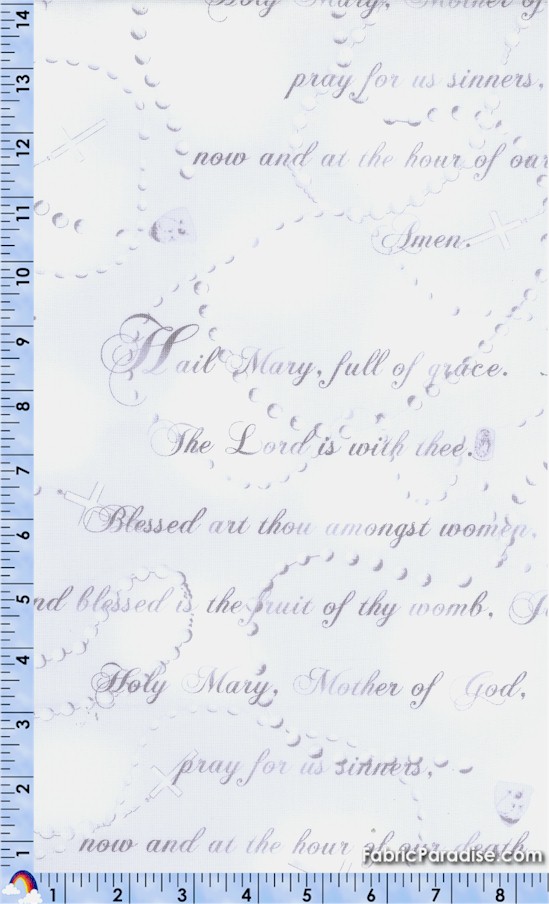 Holy Mary, Mother of
pray for us sinners,
now and at the hour of our
Amen.
Hail Mary, full of grace.
The Lord is with thee.
Blessed art thou amongst women,
nd blessed is the fruit of thy womb, J
Holy Mary, Mother of God,
pray for us sinners,
now and at the hour of our death
FabricParadise.com
14
13
12
11
10
9
8
7
6
5
4
3
2
1
1 2 3 4 5 6 7 8